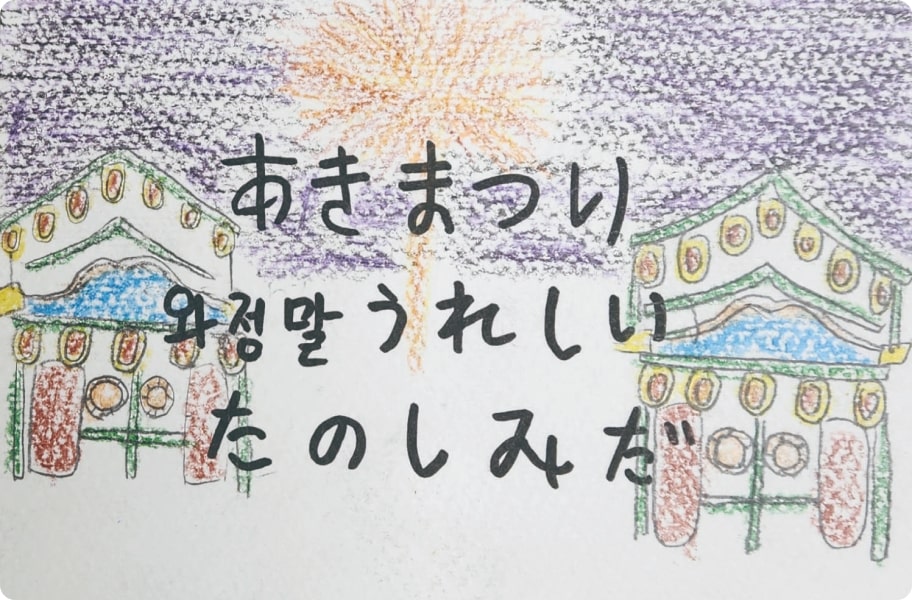 あきまつり
와 정말 うれしい
たのしみだ